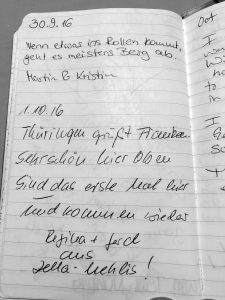 30.9.16
Wenn etwas ins Rollen kommt,
geht es meistens Berg ab.
Martin & Kristin
1.10.16
Thüringen grüßt
Sehr schön hier oben
Sind das erste Mal hier
und kommen wieder
Regina +
aus
Zella-Mehlis!
Dot
I